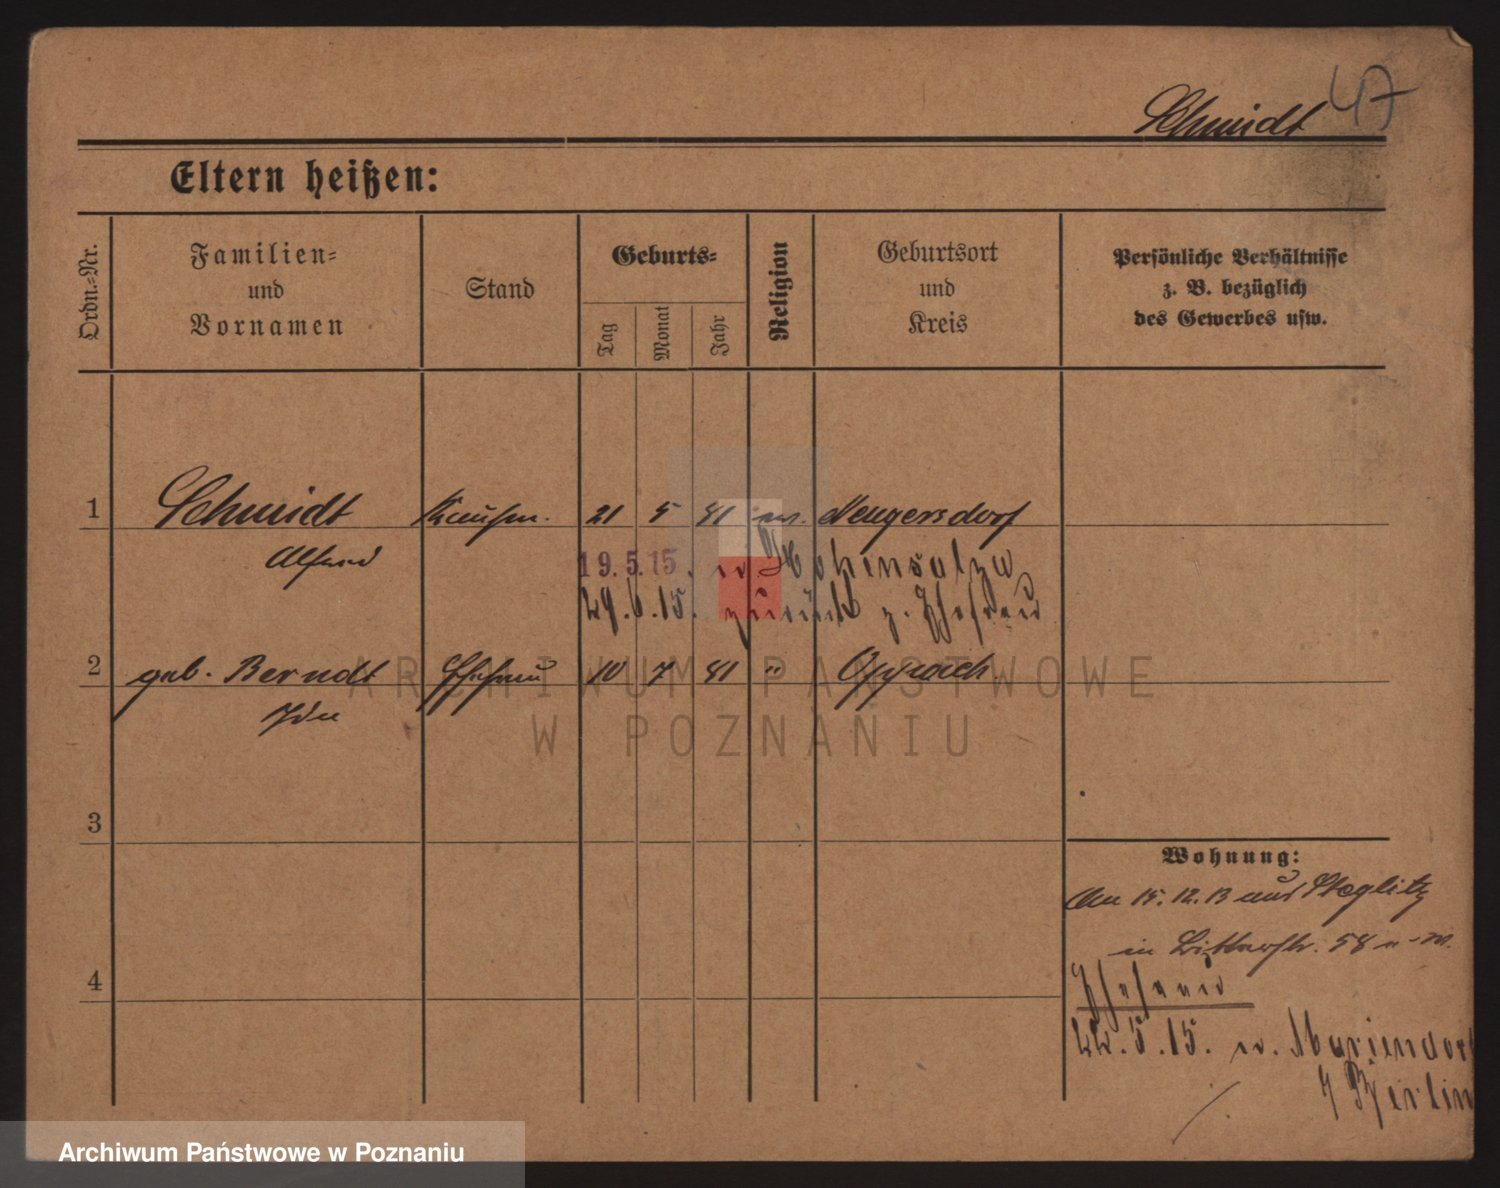 Schmidt 47
Eltern heißen:
Ordn.-Nr.
Familien-
und
Vornamen
Stand
Geburts-
Tag
Monat
Jahr
Religion
Geburtsort
und
Kreis
Persönliche Verhältnisse
z. B. bezüglich
des Gewerbes usw.
1 Schmidt Kaufm. 21 5 41 Neugersdorf
Alfred
19.5.15. Hohensalza
29.6.15. zurück z. Ehefrau
2 geb. Berndt Ehefrau 10 7 41 " Oppach
Ida
ARCHIWUM PAŃSTWOWE
W POZNANIU
3
Wohnung:
Am 15.12.13 aus Steglitz
in 58
4
Ehefrau
22.5.15. n. Mariendorf
Berlin
Archiwum Państwowe w Poznaniu